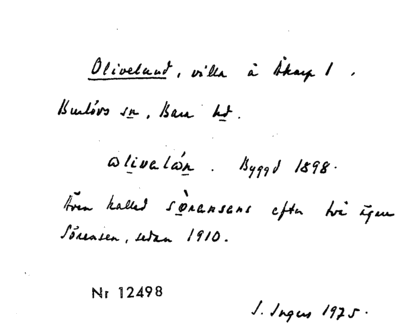 Olivelund, villa å Åkarp 1.
Burlövs sn, Bara hd.
ωlivəlún. Byggd 1898.
Även kallad sǫ̀rənsəns efter två ägare
Sörensen, sedan 1910.
Nr 12498
S. Ingers 1975.